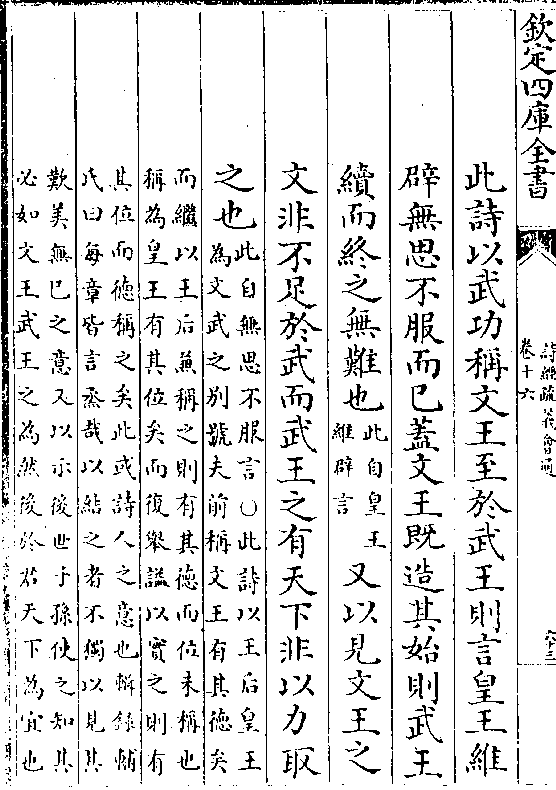 欽定四庫全書
詩經疏義會通
卷十六
六十三
此詩以武功稱文王至於武王則言皇王維
辟無思不服而已蓋文王既造其始則武王
續而終之無難也此自皇王
維辟言又以見文王之
文非不足於武而武王之有天下非以力取
之也此自無思不服言〇此詩以王后皇王
為文武之别號夫前稱文王有其德矣
而繼以王后兼稱之則有其德而位未稱也
稱為皇王有其位矣而復舉謚以實之則有
其位而德稱之矣此或詩人之意也輯録輔
氏曰每章皆言烝哉以結之者不獨以見其
歎美無已之意又以示後世子孫使之知其
必如文王武王之為然後於君天下為宜也